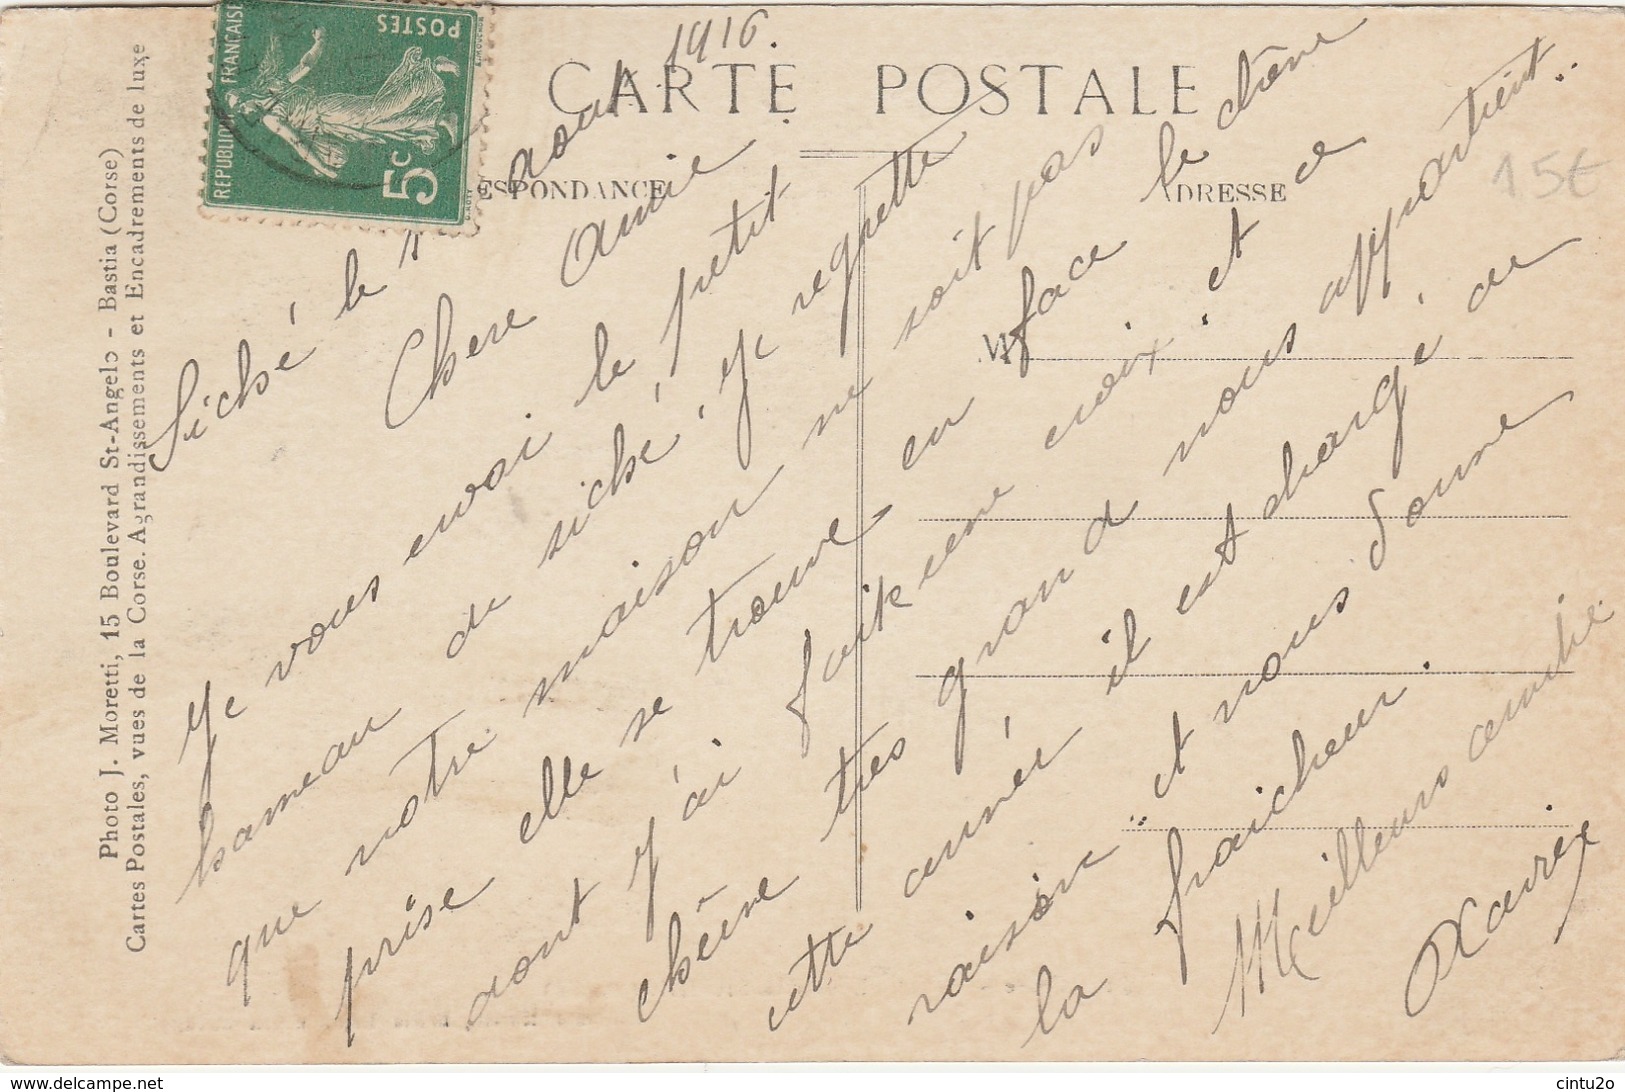 Photo J. Moretti, 15 Boulevard St-Angelo - Bastia (Corse)
Cartes Postales, vues de la Corse. Agrandissements et Encadrements de luxe
REPUBLIQUE FRANÇAISE
POSTES
5c
CARTE POSTALE
ESPONDANCE
ADRESSE
15€
Siché le 1 aout 1916.
Chere Amie.
Je vous envoi le petit
hameau de siché, Je regrette
que notre maison ne soit pas
prise elle se trouve en face le chêne
dont j'ai fait une croix, et ce
chêne tres grand nous appartient..
cette année il est chargé de
raisin " et nous donne
la fraicheur.
Meilleurs amitie
Xavier
cintu2o